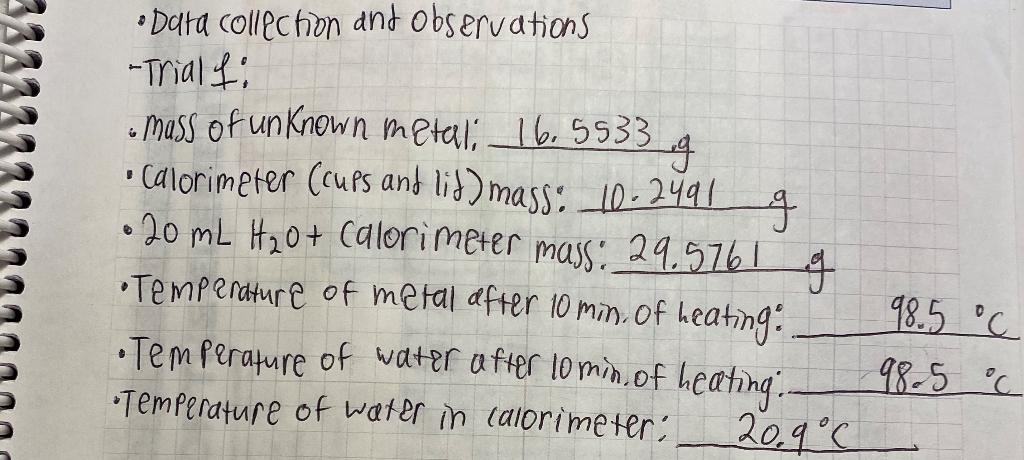 • Data collection and observations
- Trial 1:
• mass of unknown metal: 16.5533 g
• Calorimeter (cups and lid) mass: 10.2491 g
• 20 mL H₂O + Calorimeter mass: 29.5761 g
• Temperature of metal after 10 min. of heating: 98.5 °C
• Temperature of water after 10 min. of heating: 98.5 °C
• Temperature of water in calorimeter: 20.9 °C